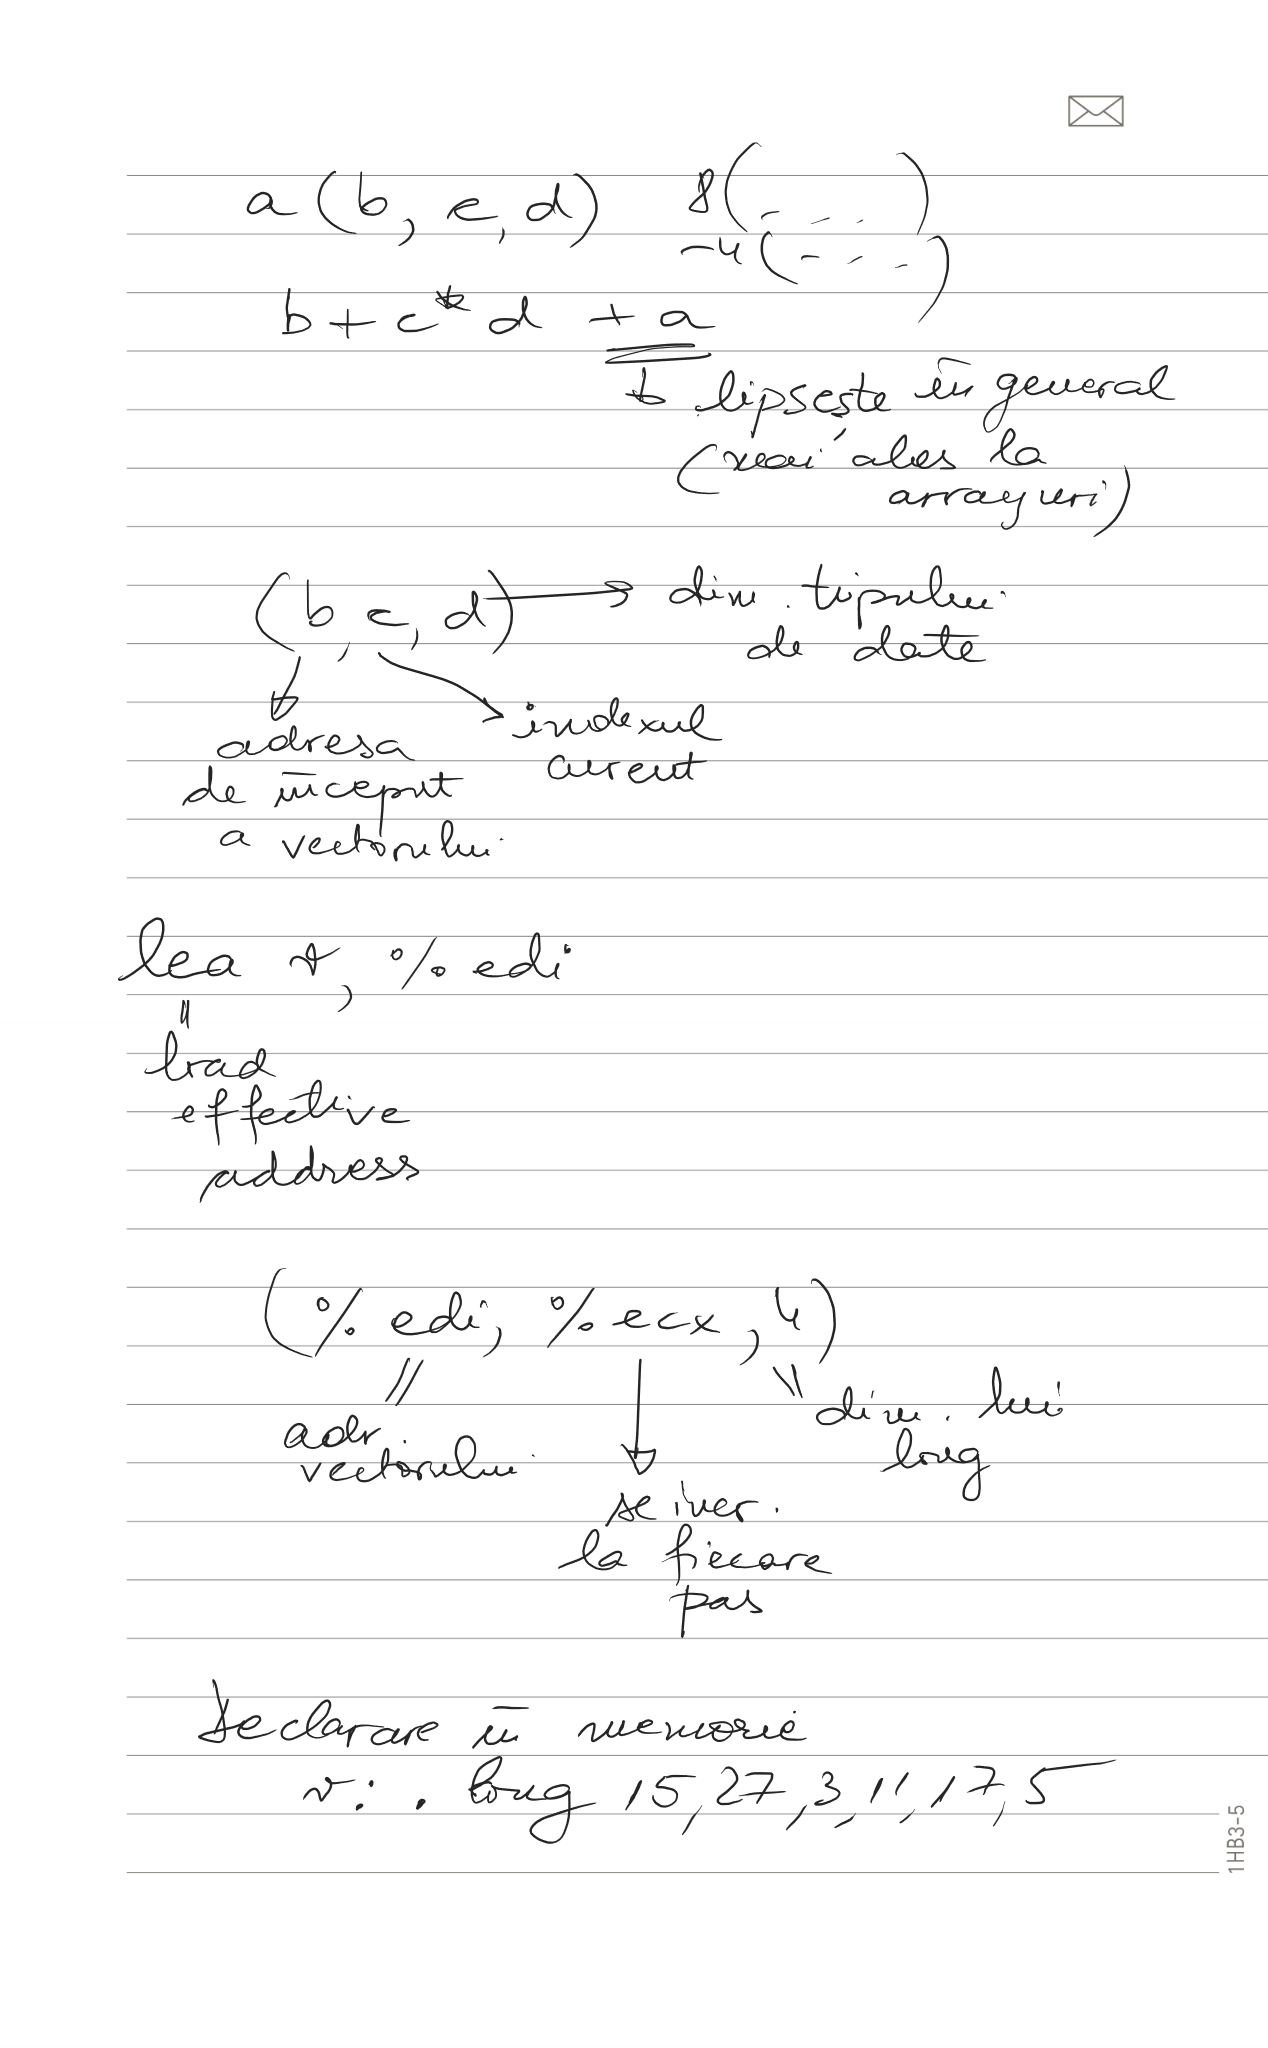 a(b, c, d) 8(_ _ _)
-4(- - -)
b + c * d + a
lipsește în general
(mai ales la
arrayuri)
(b, c, d) → dim. tipului
de date
adresa
de început
a vectorului
indexul
curent
lea v, %edi
load
effective
address
(%edi, %ecx, 4)
adr.
vectorului
se incr.
la fiecare
pas
dim. lui
long
Declarare în memorie
v: .long 15, 27, 3, 11, 17, 5
1HB3-5